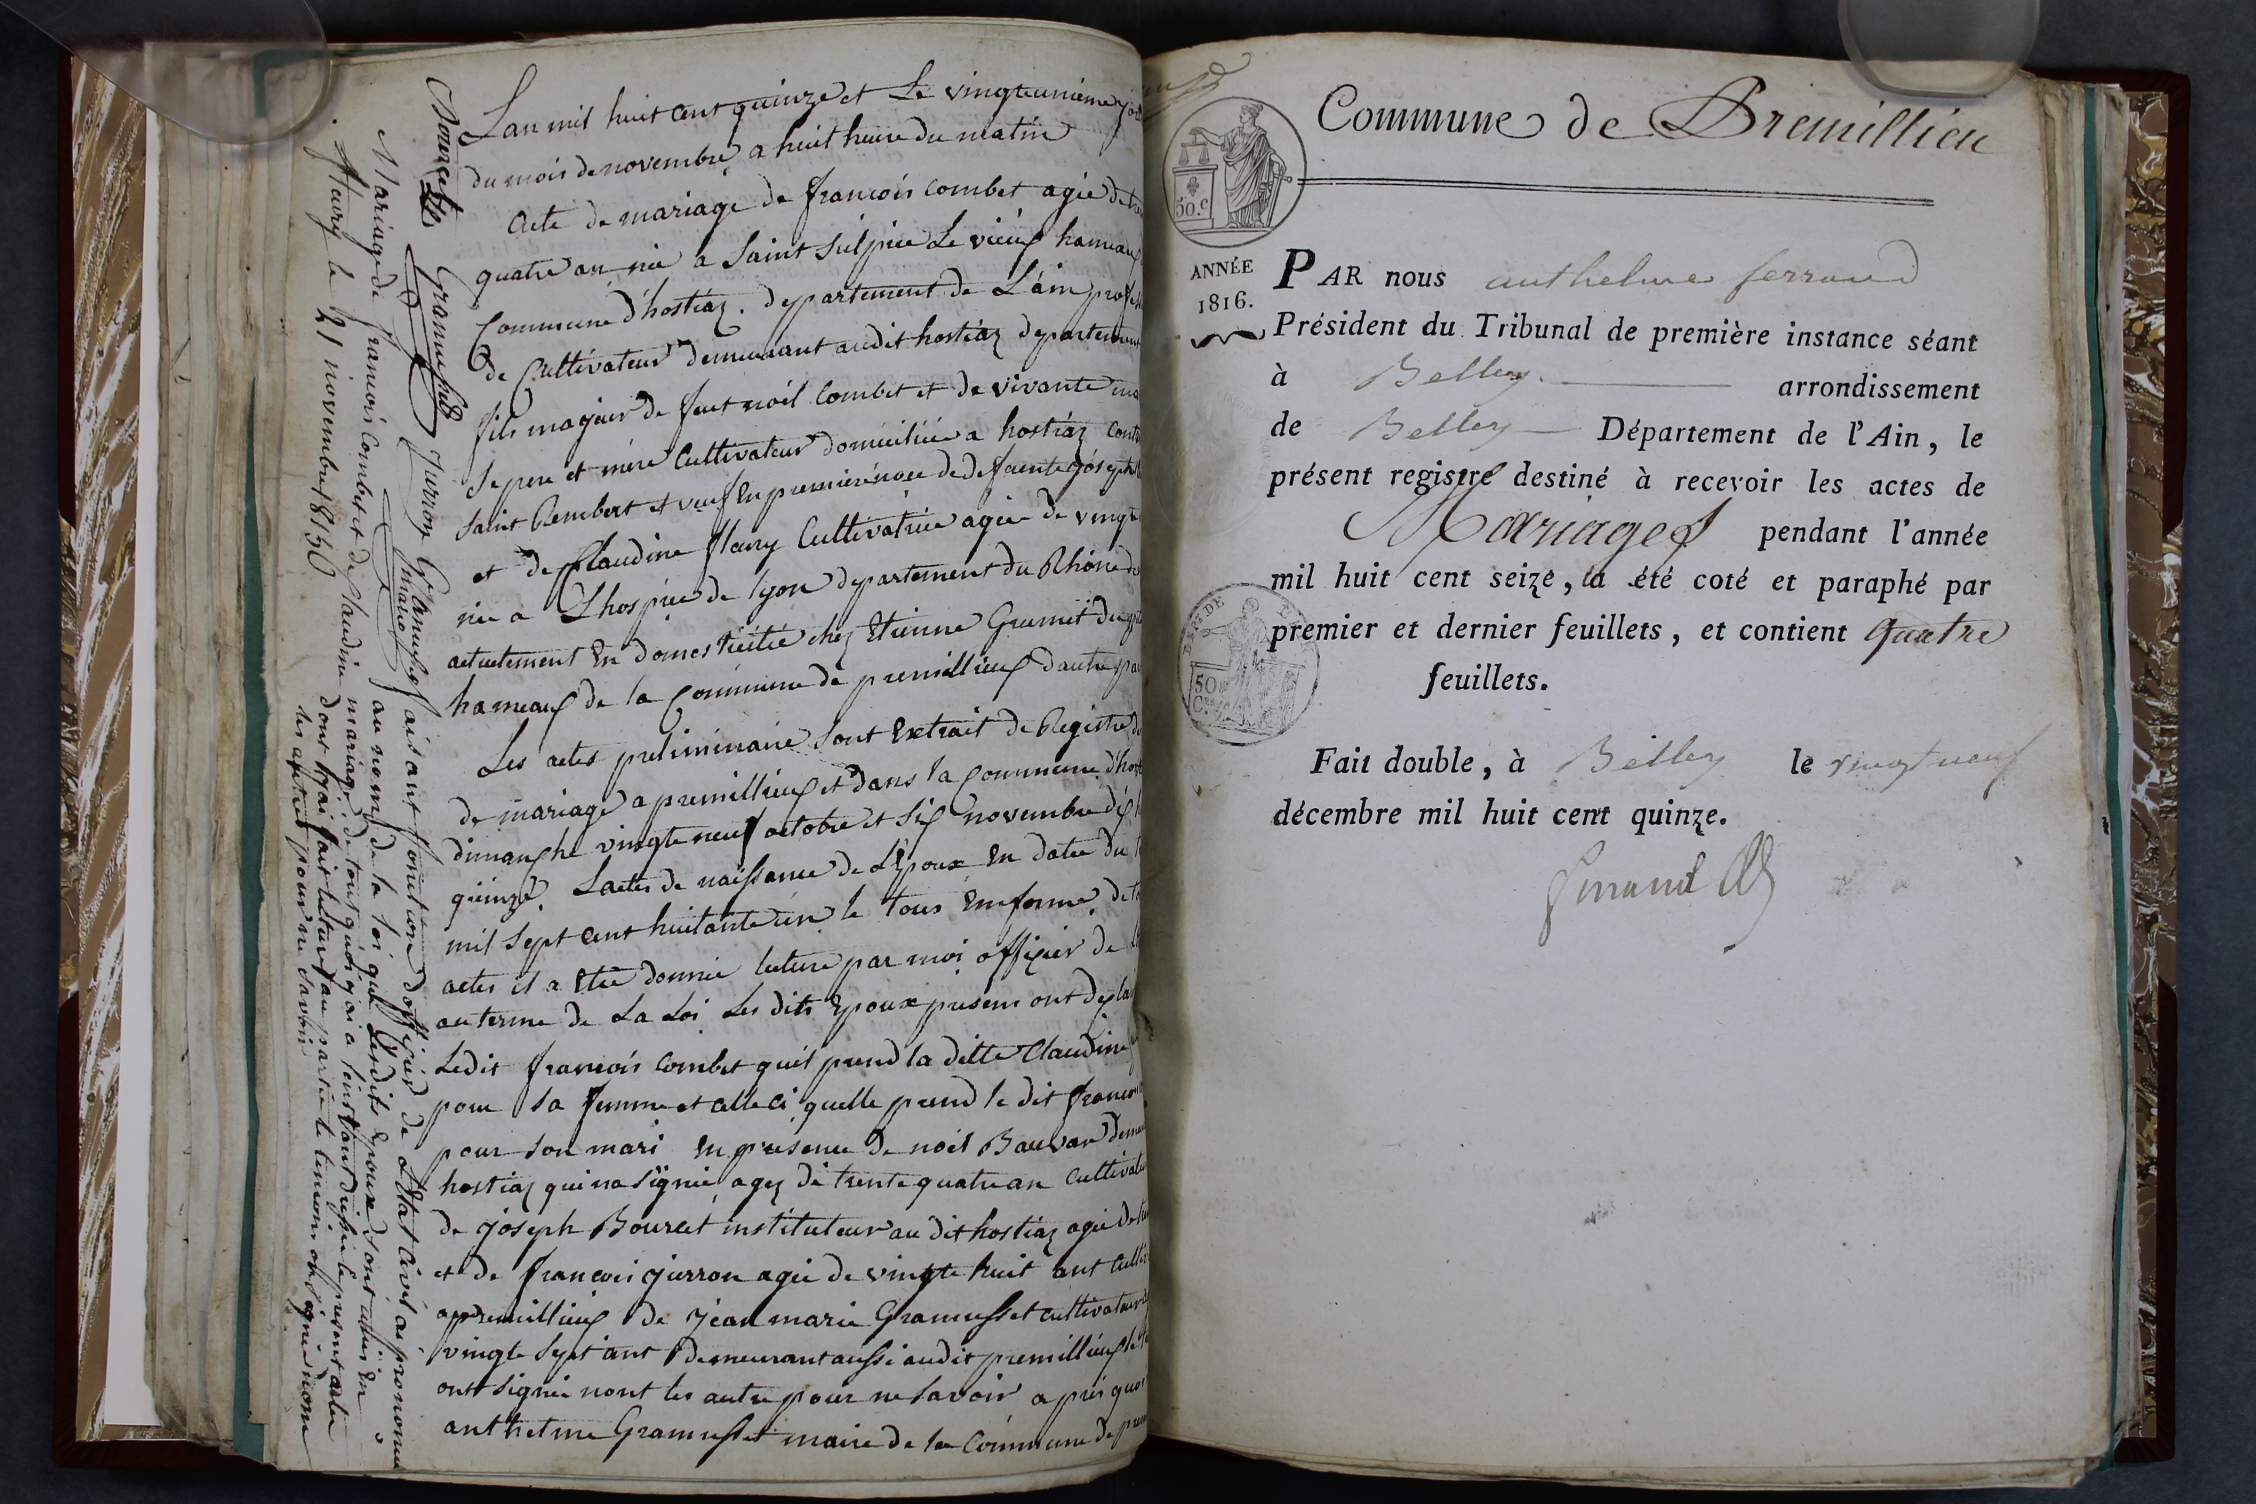 Lan mil huit cent quinze et Le vingteunieme jou
du mois de novembre a huit heure du matin
acte de mariage de francois combet agée de tre
quatre an née a Saint Sulpice Le vieux hameaux
Commune d'hostiaz. departement de L'ain profes
de Cultivateur demeurant audit hostiaz departement
fils majeur de feut noël Combet et de vivante
Se pere et mere Cultivateur domicilié a hostiaz
Saint Rembert et veuf en premiere noce de defuente joseph
et de Claudine fleury Cultivatrice agée de vingt
née a L'hospice de lyon departement du Rhône
actuelement En domesticitée chez Etienne Grumet
hameaux de la Commune de premillieux d'autre par
Les actes preliminaire Sont Extrait de Registre de
de mariage a premillieux et dans la Commune d'host
dimanche vingte neuf octobre et Six novembre dix h
quinze. Lactes de naissance de L'Epoux En date du
mil Sept cent huitante un le tous En forme. de
actes il a Etée donnée lecture par moi officier de
au terme de La Loi Les dits Epoux present ont declar
Ledit francois combet quil prend la ditte Claudine
pour Sa femme et celle ci quelle prend le dit francoi
pour Son mari En presence de noël Bauvar
hostiaz qui na Signée agez de trente quatre an Cultivate
de joseph Bourcet instituteur au dit hostiaz agée de
et de francois jurron agée de vingte huit ant
a premillieux de jean marie Gramusset cultivateur
vingte Sept ant demeurant aussi audit premillieux
ont Signée nont les autre pour ne Savoir apres quoi
anthelme Gramusset maire de la Commune de prem
faisant fonction d'officier de L'Etat Civil ai prononcé
au nom de la loi que Lendits Epoux Sont unis En
mariage de tout quoi j'ai a l'instant dressé le present acte
dont j'ai fait lecture aux partie te temoin on Signée nom
les autre pour ne Savoir
Bourcet
Gramusset
jurron
Gramusset
maire
Mariage de francois combet et de Claudine
fleury le 21 novembre 1815
Commune de Premillieu
50.c
ANNÉE
1816.
PAR nous anthelme ferrand
Président du Tribunal de première instance séant
à Belley arrondissement
de Belley Département de l'Ain, le
présent registre destiné à recevoir les actes de
Mariages pendant l'année
mil huit cent seize, a été coté et paraphé par
premier et dernier feuillets, et contient quatre
feuillets.
Fait double, à Belley le vingt neuf
décembre mil huit cent quinze.
ferrand